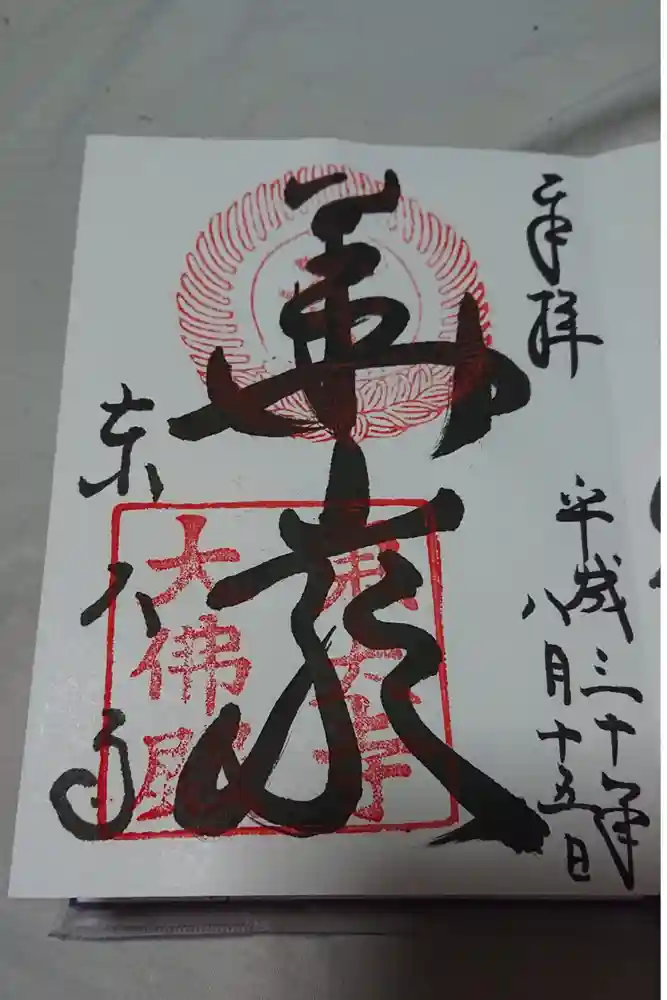 奉拝
平成三十年
八月十五日
華厳
東大寺
大佛殿
東大寺